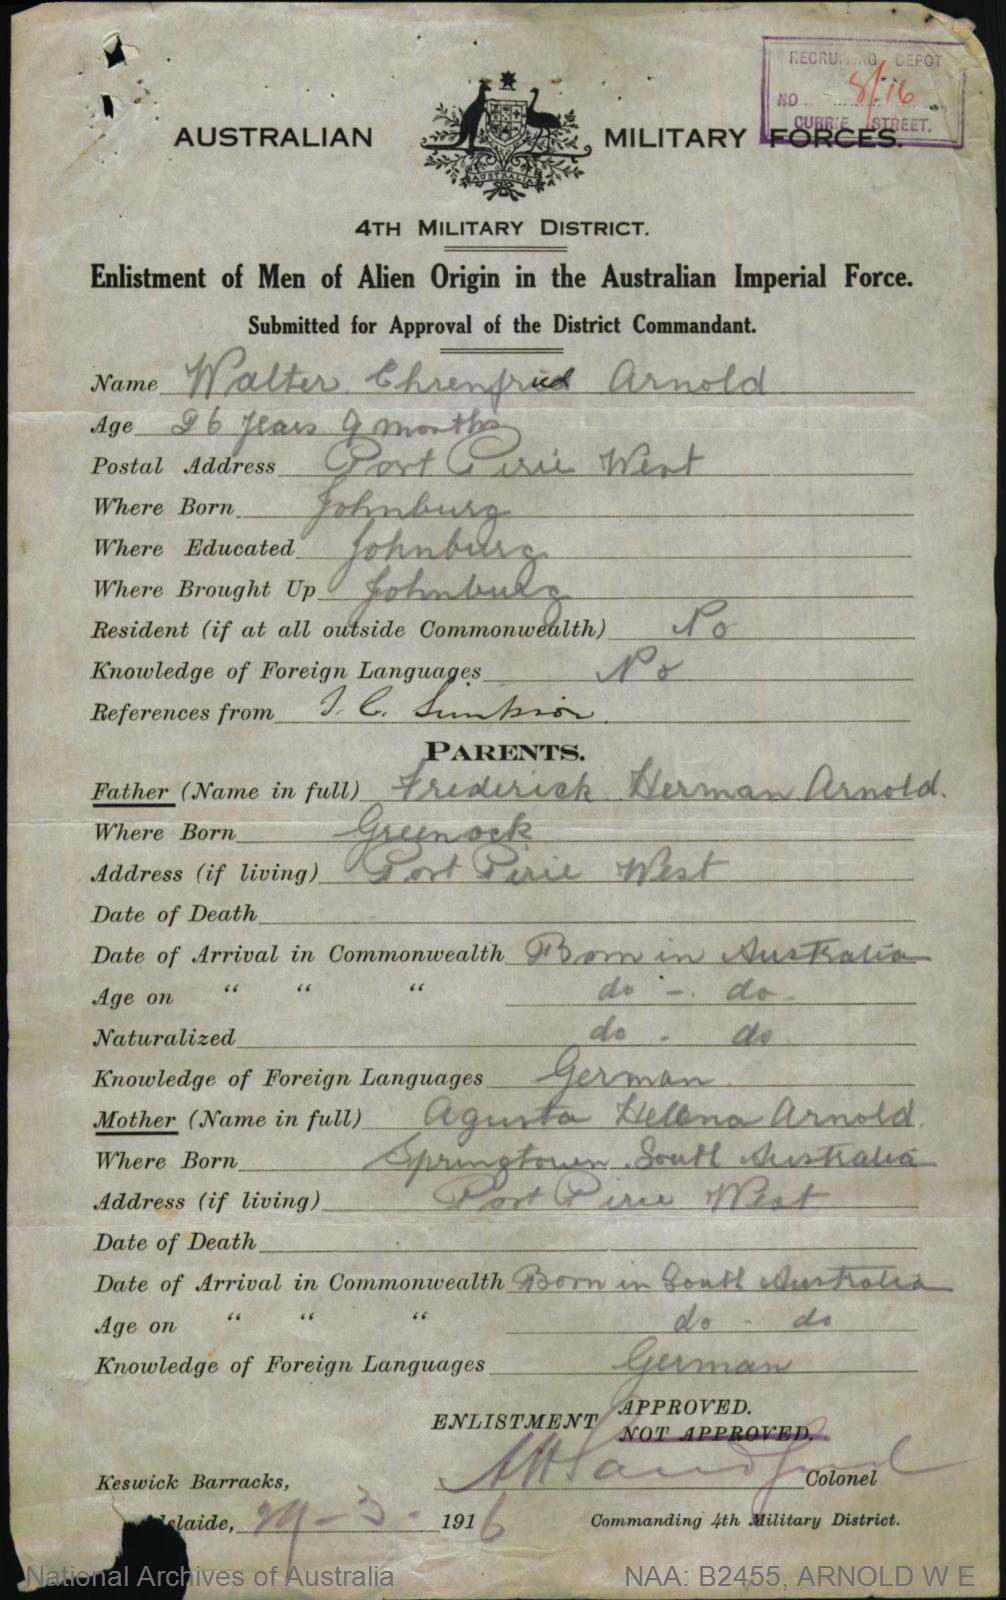 RECRUITING DEPOT
NO. 8/16
CURRIE STREET.
AUSTRALIAN MILITARY FORCES.
AUSTRALIA
4TH MILITARY DISTRICT.
Enlistment of Men of Alien Origin in the Australian Imperial Force.
Submitted for Approval of the District Commandant.
Name Walter Ehrenfried Arnold
Age 26 years 9 months
Postal Address Port Pirie West
Where Born Johnburg
Where Educated Johnburg
Where Brought Up Johnburg
Resident (if at all outside Commonwealth) No
Knowledge of Foreign Languages No
References from
PARENTS.
Father (Name in full) Frederick Herman Arnold.
Where Born Greenock
Address (if living) Port Pirie West
Date of Death
Date of Arrival in Commonwealth Born in Australia
Age on " " " do - do.
Naturalized do - do
Knowledge of Foreign Languages German
Mother (Name in full) Agusta Helena Arnold.
Where Born Springtown South Australia
Address (if living) Port Pirie West
Date of Death
Date of Arrival in Commonwealth Born in South Australia
Age on " " " do - do
Knowledge of Foreign Languages German
ENLISTMENT APPROVED.
NOT APPROVED.
Colonel
Keswick Barracks,
delaide, 29-3-1916
Commanding 4th Military District.
National Archives of Australia
NAA: B2455, ARNOLD W E